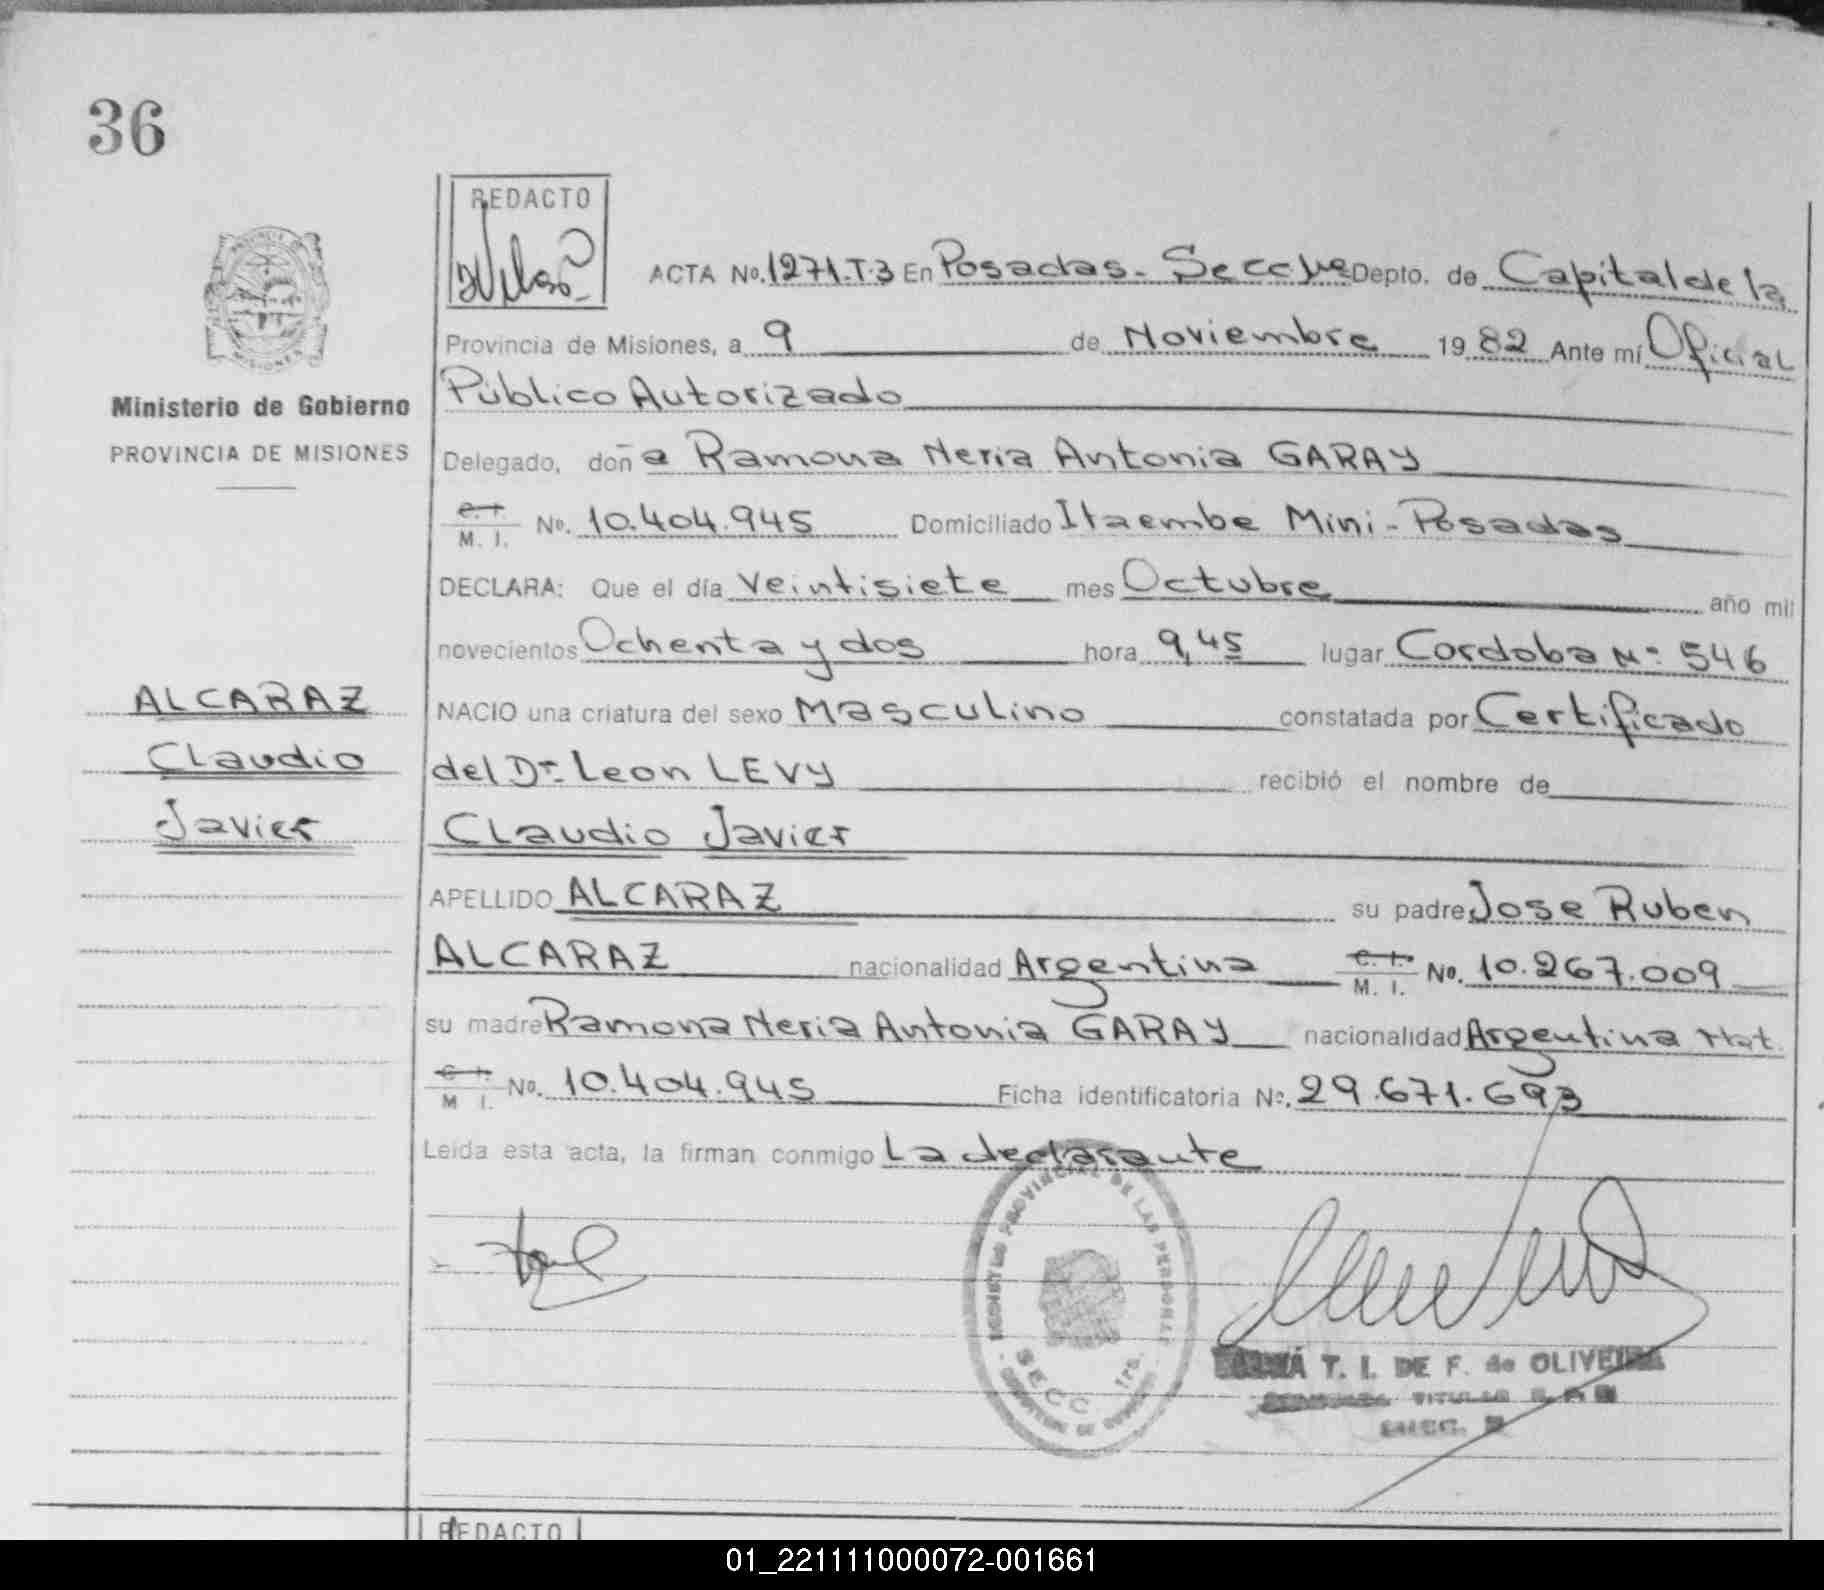 36
REDACTO
ACTA No. 1271.T.3 En Posadas - Secc 1ra Depto. de Capital de la
Provincia de Misiones, a 9 de Noviembre 1982 Ante mí Oficial
Público Autorizado
Ministerio de Gobierno
PROVINCIA DE MISIONES
Delegado, doña Ramona Neria Antonia GARAY
C. I. M. I. No. 10.404.945 Domiciliado Itaembe Mini - Posadas
DECLARA: Que el día Veintisiete mes Octubre año mil
novecientos Ochenta y dos hora 9,45 lugar Cordoba Nº 546
NACIO una criatura del sexo Masculino constatada por Certificado
del Dr. Leon LEVY recibió el nombre de
Claudio Javier
ALCARAZ
Claudio
Javier
APELLIDO ALCARAZ su padre Jose Ruben
ALCARAZ nacionalidad Argentina C. I. M. I. No. 10.267.009
su madre Ramona Neria Antonia GARAY nacionalidad Argentina Mat.
C. I. M. I. No. 10.404.945 Ficha identificatoria No. 29.671.693
Leida esta acta, la firman conmigo La declarante
REGISTRO PROVINCIAL DE LAS PERSONAS
SECC 1ra.
T. I. DE F. de OLIVEIRA
TITULAR
REDACTO
01_221111000072-001661